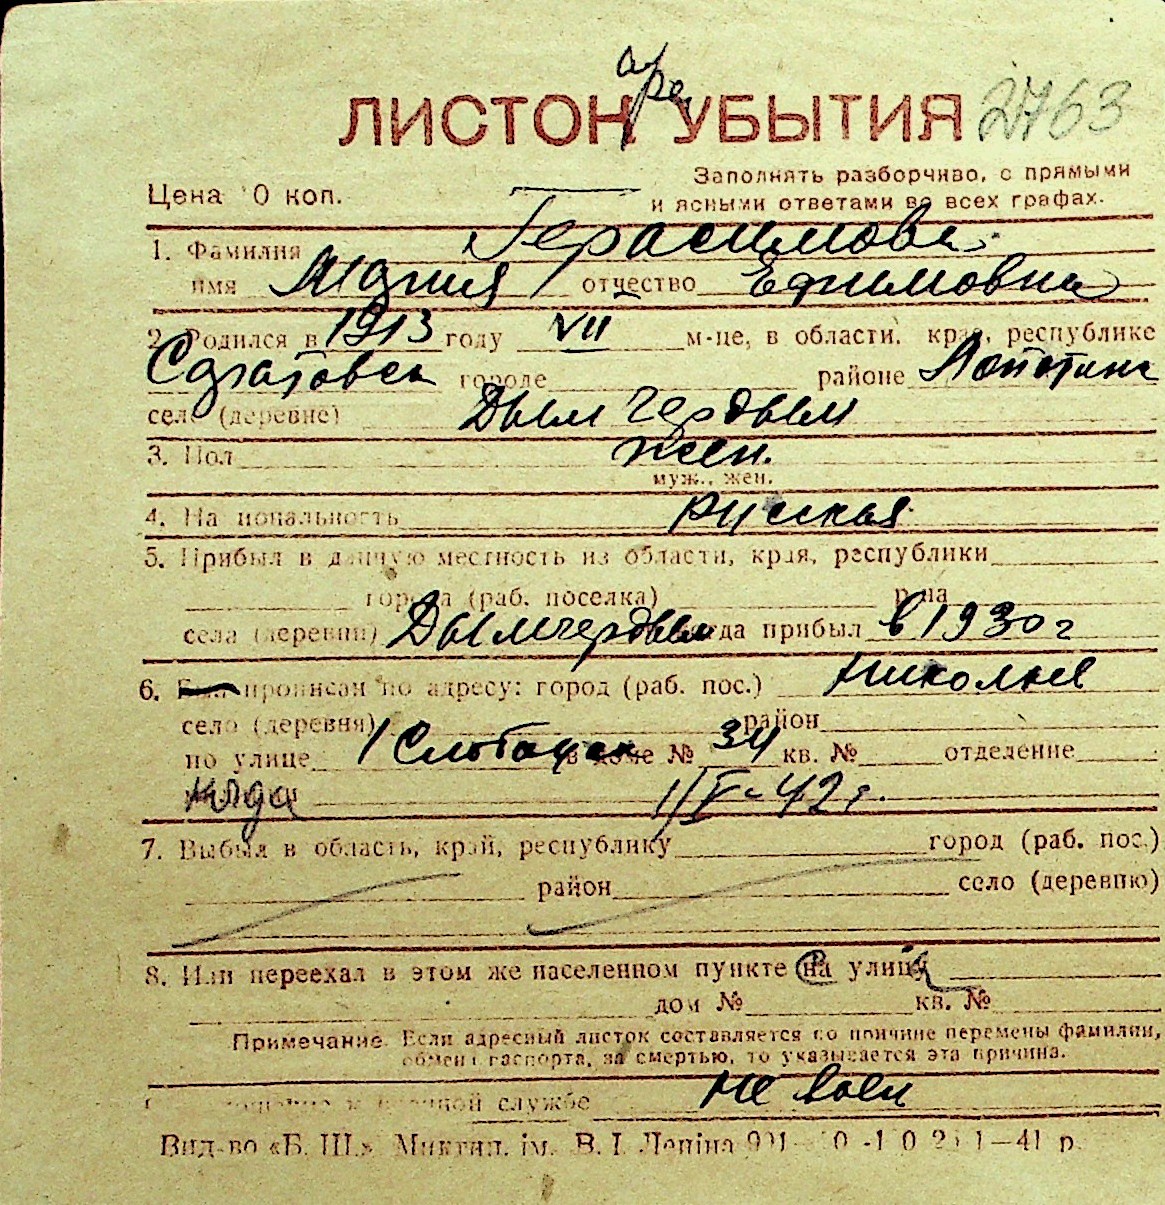 ЛИСТОК УБЫТИЯ 2763
Цена 0 коп.
Заполнять разборчиво, с прямыми
и ясными ответами во всех графах.
1. Фамилия Герасимова
имя Мария отчество Ефимовна
2. Родился в 1913 году VII м-це, в области, края, республике
Саратовск городе районе
село (деревне) Дымчердым
3. Пол жен.
муж., жен.
4. Национальность русская
5. Прибыл в данную местность из области, края, республики
города (раб. поселка) р-на
села (деревни) Дымчердым когда прибыл в 1930 г
6. Был прописан по адресу: город (раб. пос.) Николаев
село (деревня) район
по улице 1 Слободск в доме № 34 кв. № отделение
когда 1/IV-42 г.
7. Выбыл в область, край, республику город (раб. пос.)
район село (деревню)
8. Или переехал в этом же населенном пункте на улицу
дом № кв. №
Примечание. Если адресный листок составляется по причине перемены фамилии,
обмена паспорта, за смертью, то указывается эта причина.
военной службе не воен
Вид-во «Б. Ш.» Миктип. ім. В. І. Леніна 41 р.